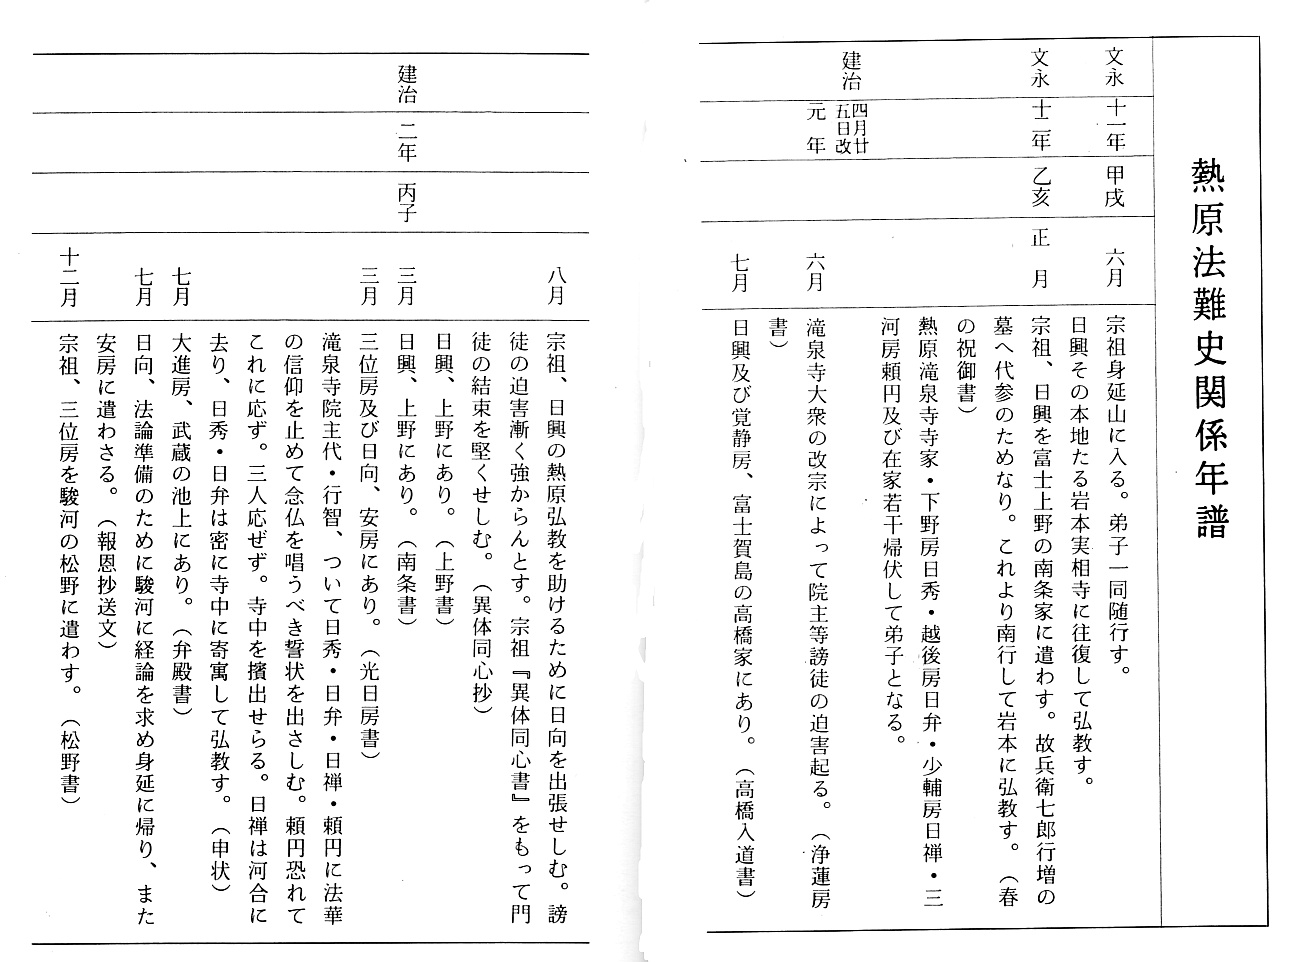 熱原法難史関係年譜
文永 十一年 甲戌 六月 宗祖身延山に入る。弟子一同随行す。
日興その本地たる岩本実相寺に往復して弘教す。
文永 十二年 乙亥 正月 宗祖、日興を富士上野の南条家に遣わす。故兵衛七郎行増の
墓へ代参のためなり。これより南行して岩本に弘教す。（春
の祝御書）
熱原滝泉寺寺家・下野房日秀・越後房日弁・少輔房日禅・三
河房頼円及び在家若干帰伏して弟子となる。
建治 四月廿五日改 元年 六月 滝泉寺大衆の改宗によって院主等謗徒の迫害起る。（浄蓮房
書）
七月 日興及び覚静房、富士賀島の高橋家にあり。（高橋入道書）
八月 宗祖、日興の熱原弘教を助けるために日向を出張せしむ。謗
徒の迫害漸く強からんとす。宗祖『異体同心書』をもって門
徒の結束を堅くせしむ。（異体同心抄）
日興、上野にあり。（上野書）
建治 二年 丙子 三月 日興、上野にあり。（南条書）
三月 三位房及び日向、安房にあり。（光日房書）
滝泉寺院主代・行智、ついて日秀・日弁・日禅・頼円に法華
の信仰を止めて念仏を唱うべき誓状を出さしむ。頼円恐れて
これに応ず。三人応ぜず。寺中を擯出せらる。日禅は河合に
去り、日秀・日弁は密に寺中に寄寓して弘教す。（申状）
七月 大進房、武蔵の池上にあり。（弁殿書）
七月 日向、法論準備のために駿河に経論を求め身延に帰り、また
安房に遣わさる。（報恩抄送文）
十二月 宗祖、三位房を駿河の松野に遣わす。（松野書）